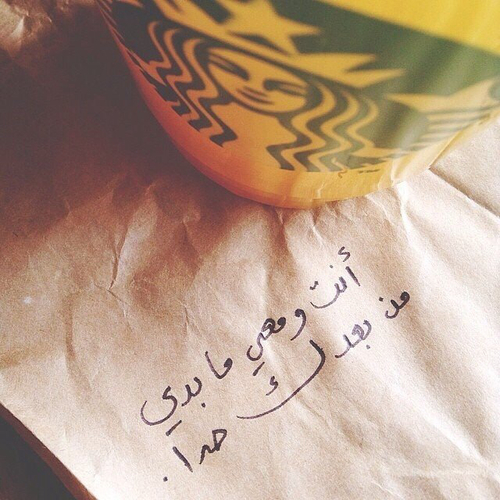 أنت ومعي ما بدي
من بعدك حدا.